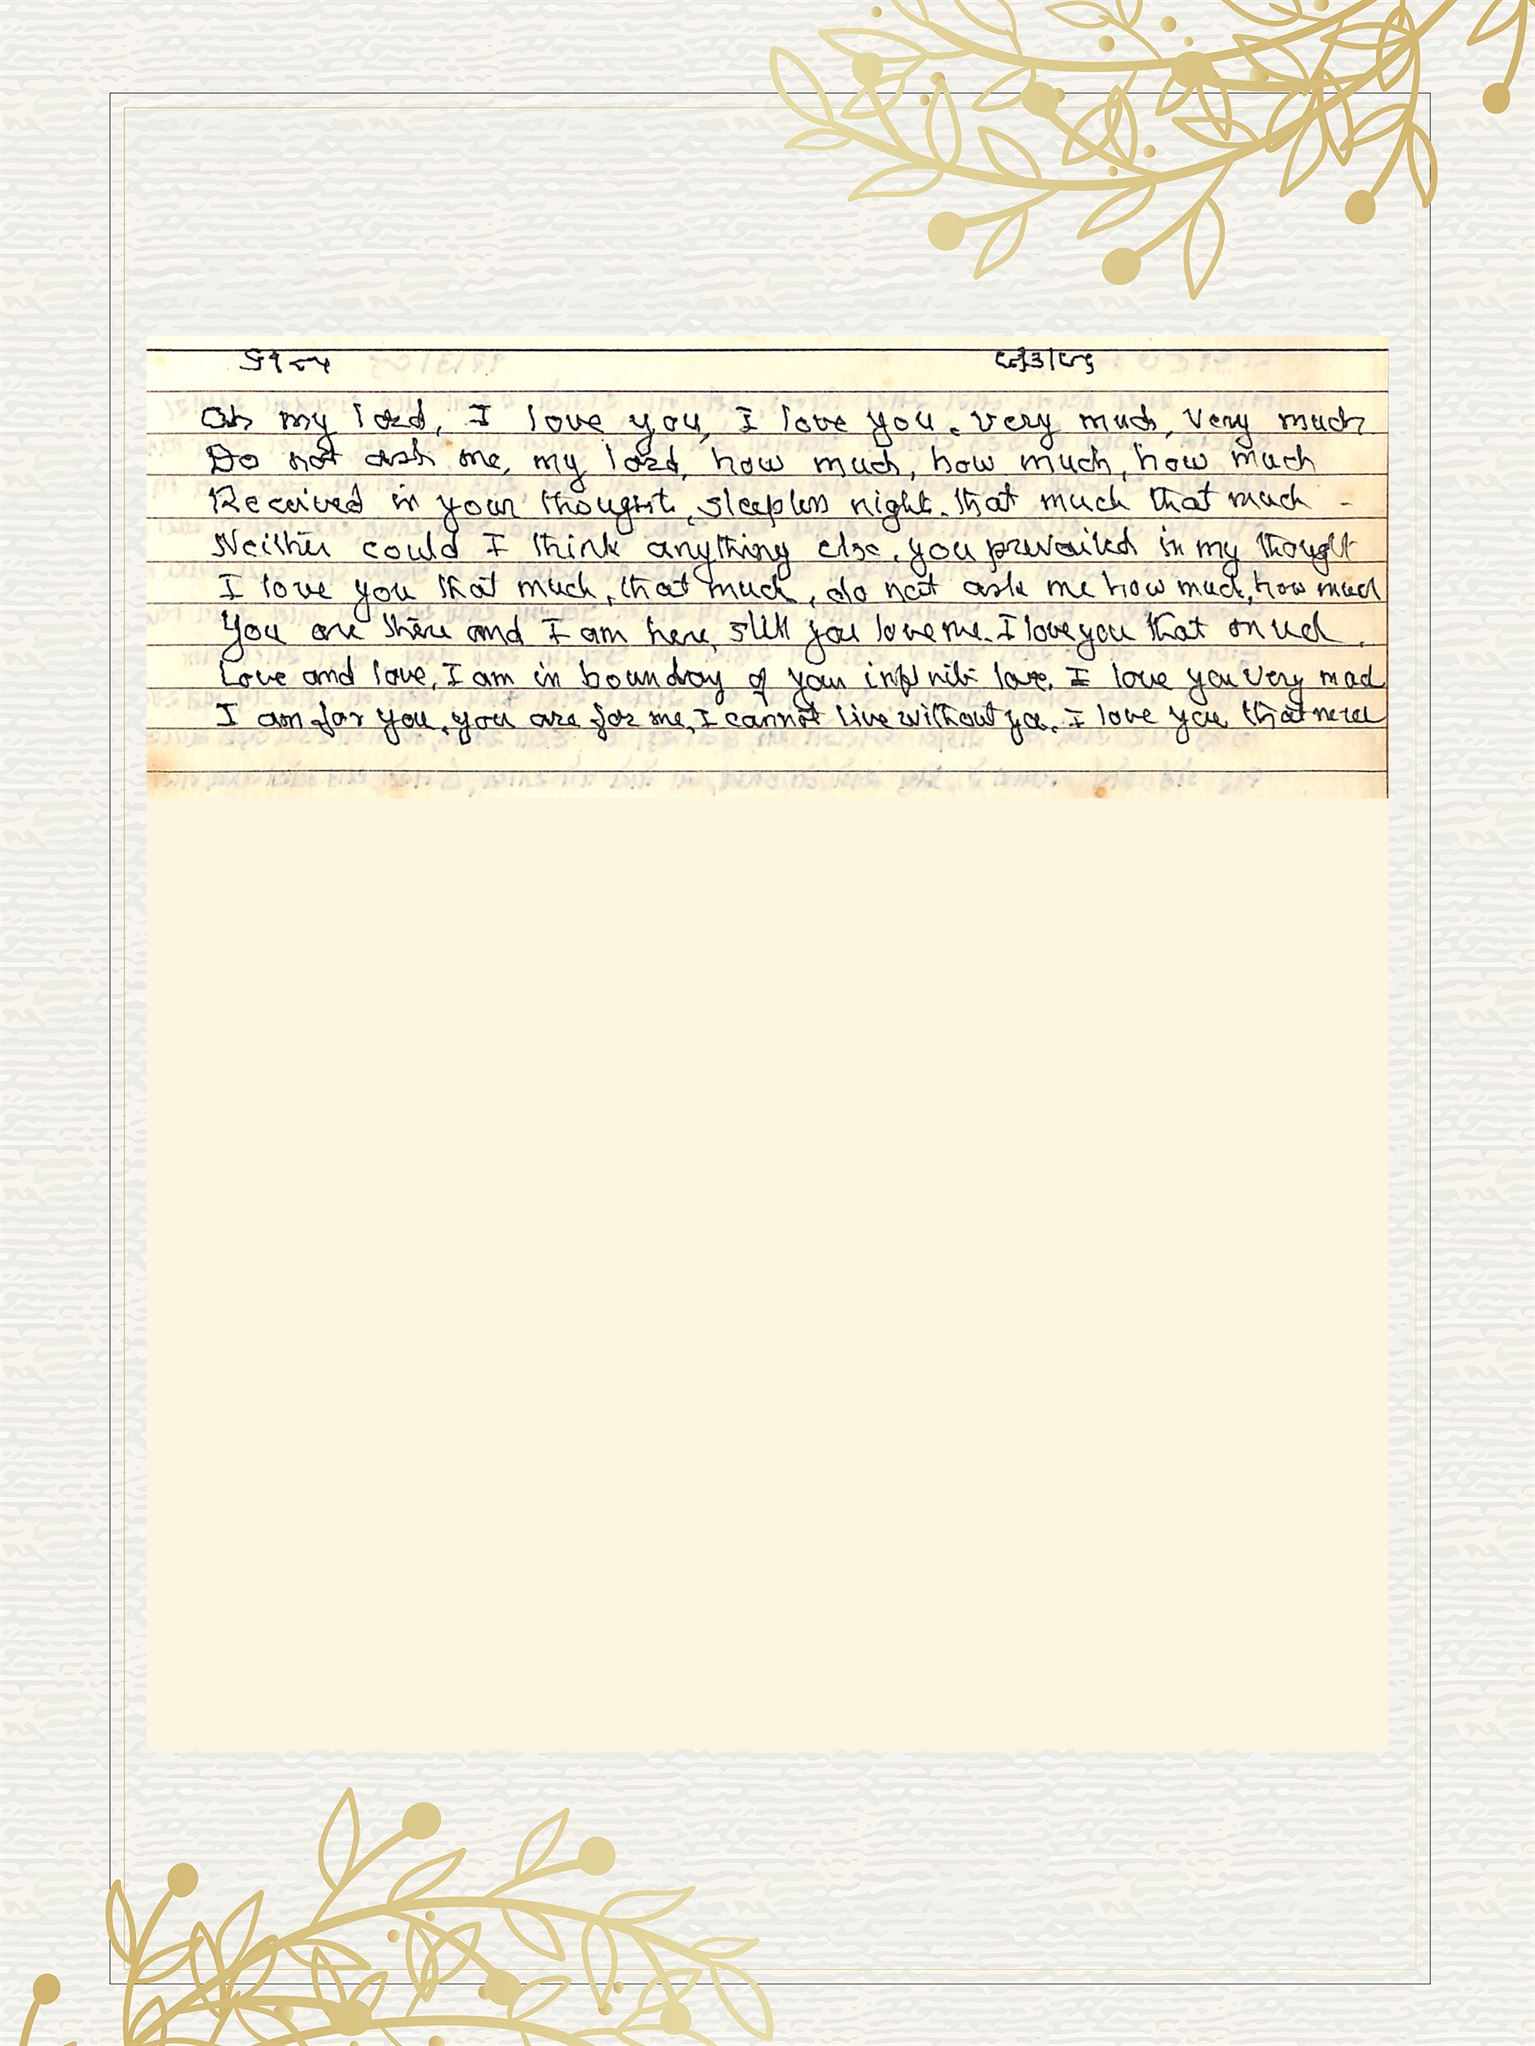 Oh my lord, I love you, I love you. very much, very much
Do not ask me, my lord, how much, how much, how much
Received in your thought, sleepless night. that much that much -
Neither could I think anything else, you prevailed in my thought
I love you that much, that much, do not ask me how much, how much
You are there and I am here, still you love me. I love you that much.
Love and love, I am in bounday of your infinite love. I love you very
I am for you, you are for me, I cannot live without you. I love you that